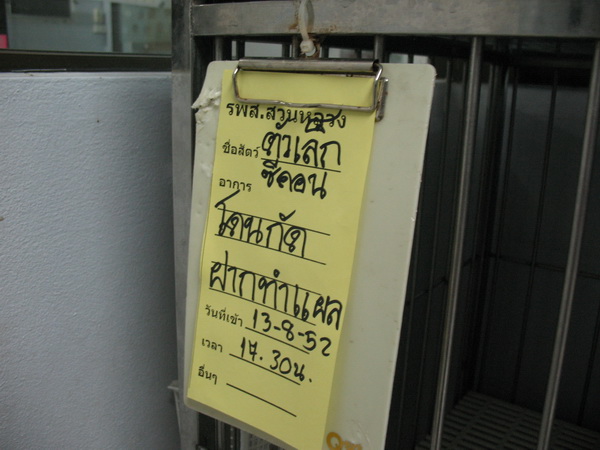 รพส.สวนหลวง
ชื่อสัตว์ ตัวเล็ก
ซีคอน
อาการ
โดนกัด
ฝากทำแผล
วันที่เข้า 13-8-52
เวลา 17.30น.
อื่นๆ